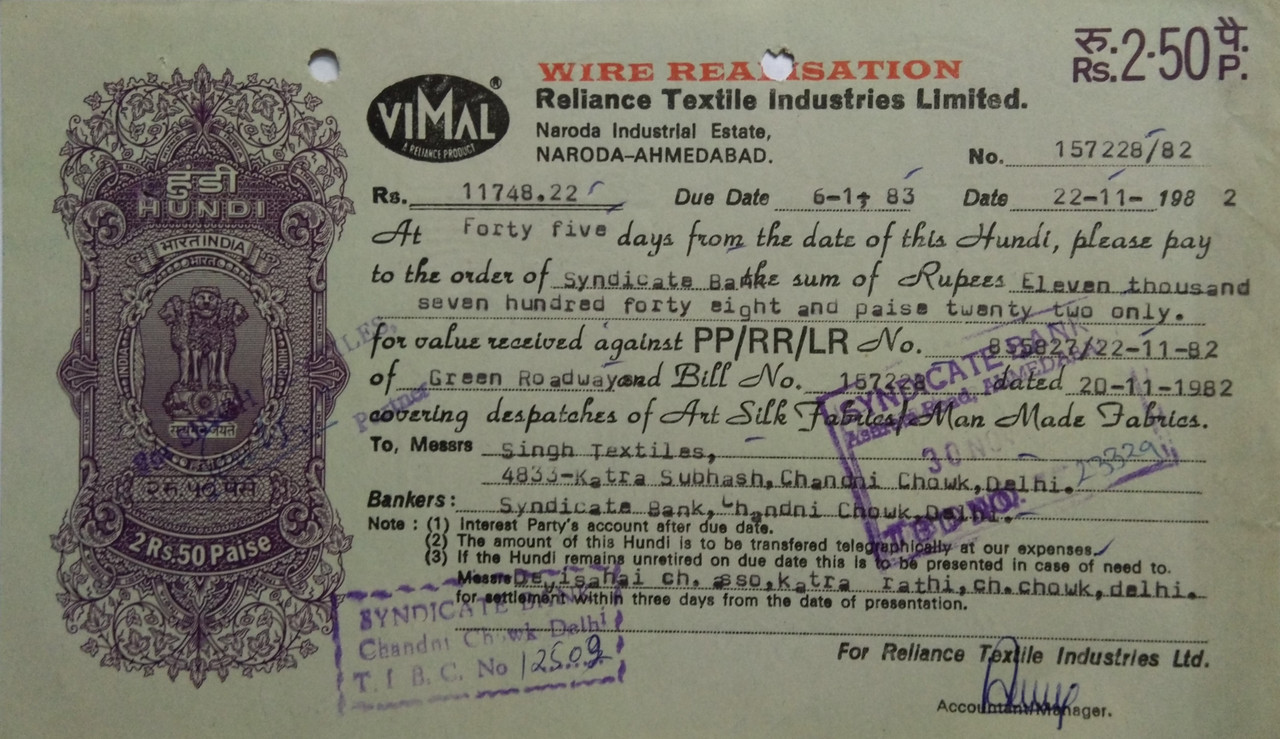 रु. 2.50 पै.
Rs. P.
WIRE REALISATION
VIMAL ®
A RELIANCE PRODUCT
Reliance Textile Industries Limited.
Naroda Industrial Estate,
NARODA-AHMEDABAD.
No. 157228/82
Rs. 11748.22 Due Date 6-1-83 Date 22-11-1982
At Forty five days from the date of this Hundi, please pay
to the order of Syndicate Bank the sum of Rupees Eleven thousand
seven hundred forty eight and paise twenty two only.
for value received against PP/RR/LR No. /22-11-82
of Green Roadways and Bill No. 157228 dated 20-11-1982
covering despatches of Art Silk Fabrics/Man Made Fabrics.
To, Messrs Singh Textiles,
4833-Katra Subhash, Chandni Chowk, Delhi.
Bankers: Syndicate Bank, Chandni Chowk, Delhi.
Note : (1) Interest Party's account after due date.
(2) The amount of this Hundi is to be transfered telegraphically at our expenses.
(3) If the Hundi remains unretired on due date this is to be presented in case of need to.
Messrs Devisahai ch. sso, katra rathi, ch. chowk, delhi.
for settlement within three days from the date of presentation.
For Reliance Textile Industries Ltd.
Accountant/Manager.
हुंडी
HUNDI
भारत INDIA
भारत
सत्यमेव जयते
२ रु. ५० पैसे
2 Rs. 50 Paise
Partner
SYNDICATE BANK
AHMEDABAD
30 NOV
23329
SYNDICATE BANK
Chandni Chowk Delhi
T. I B. C. No 12509